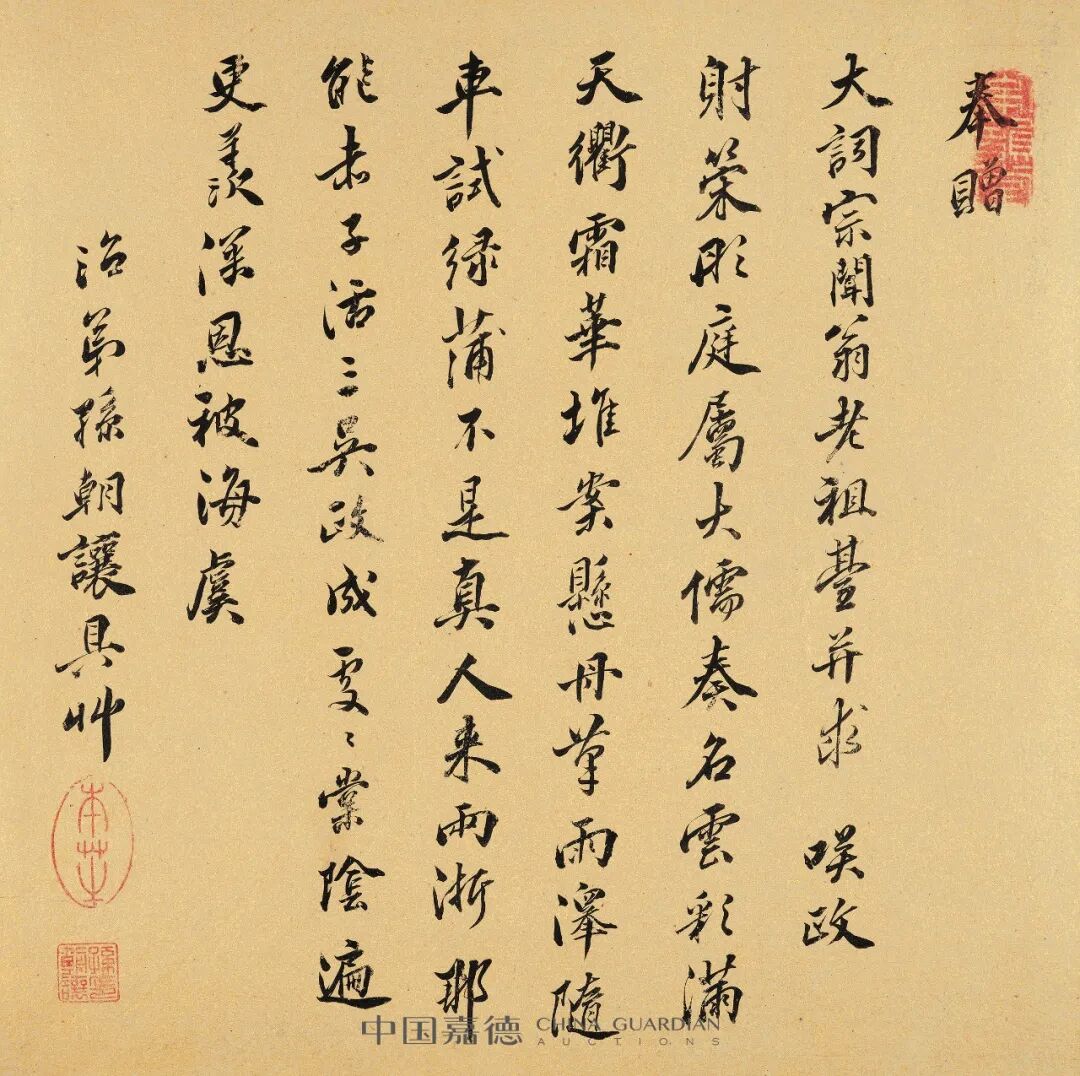 奉贈
大詞宗聞翁老祖臺并求 咲政
射策彤庭屬大儒奏名雲彩滿
天衢霜華堆案懸丹筆雨澤隨
車試綠蒲不是真人来兩浙那
能赤子活三吳政成處〻棠陰遍
更羨深恩被海虞
治弟孫朝讓具艸
本芝
孫朝讓
中国嘉德 CHINA GUARDIAN
AUCTIONS